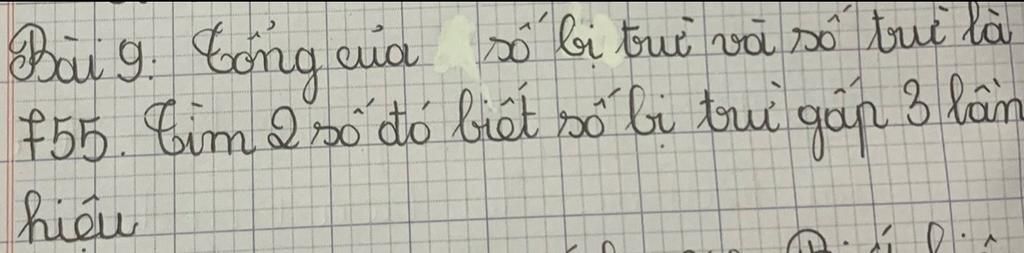 Bài 9. Tổng của số bị trừ và số trừ là
755. Tìm 2 số đó biết số bị trừ gấp 3 lần
hiệu